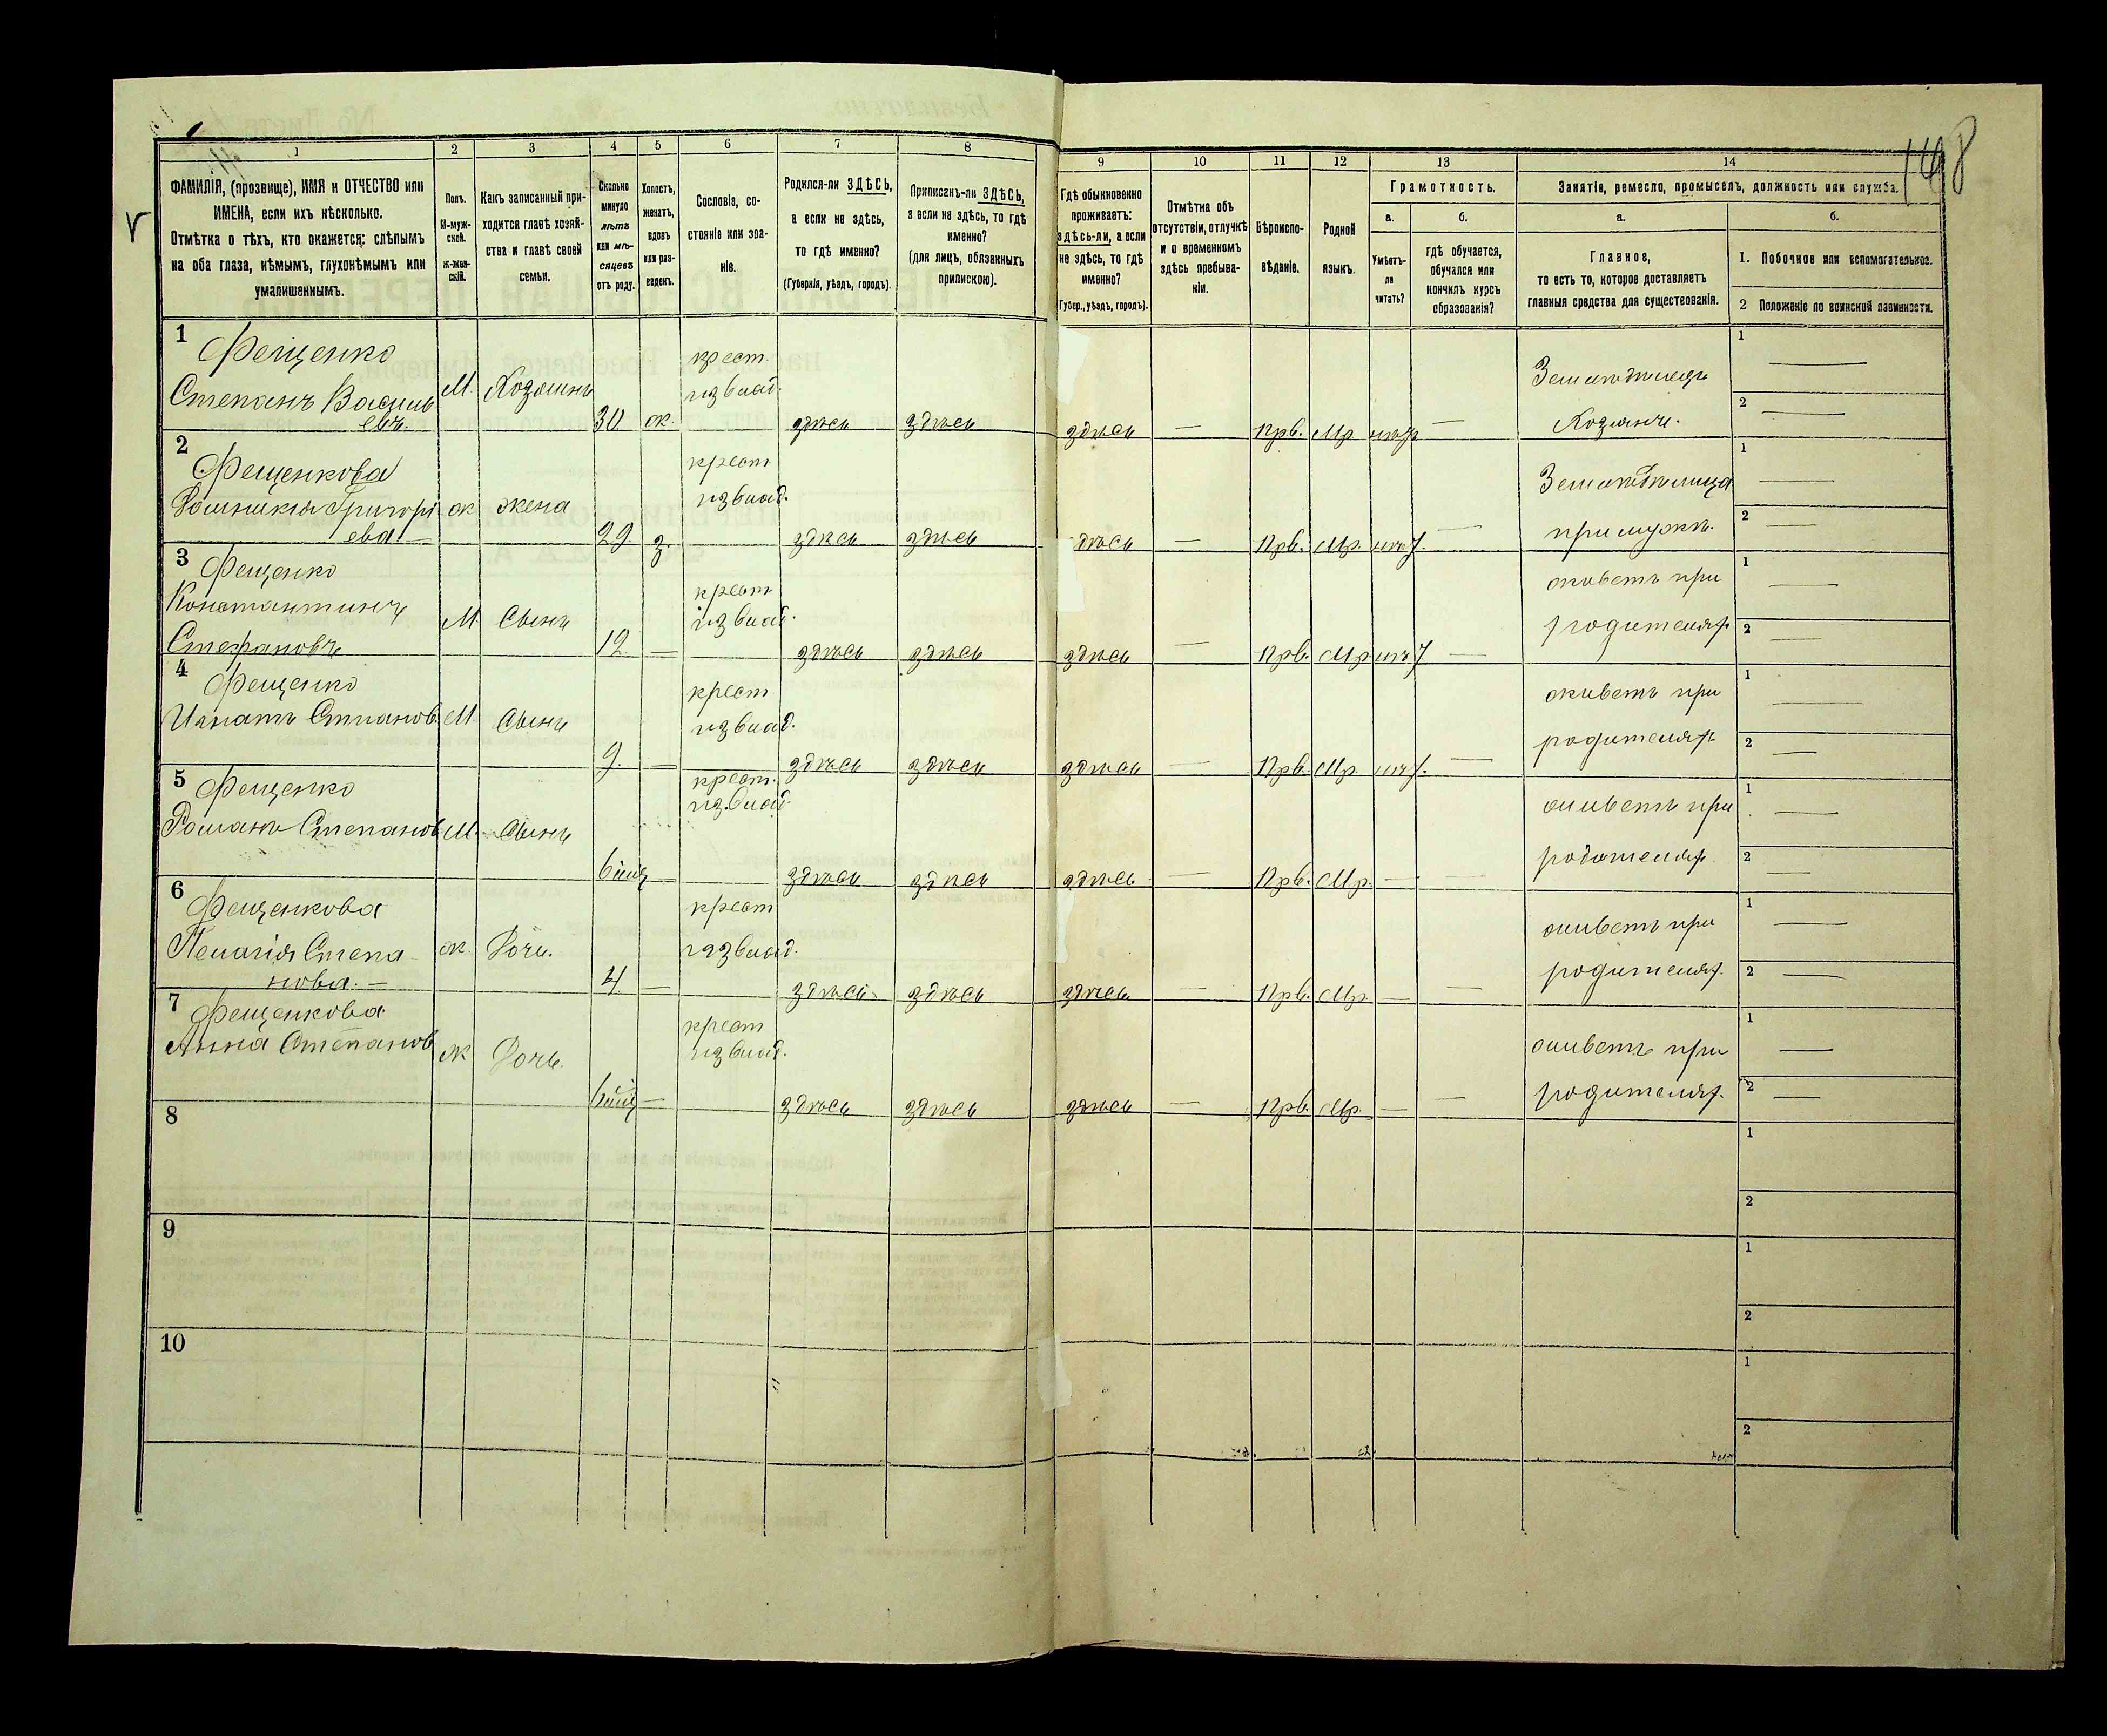 148
1 2 3 4 5 6 7 8 9 10 11 12 13 14
ФАМИЛІЯ, (прозвище), ИМЯ и ОТЧЕСТВО или
ИМЕНА, если ихъ нѣсколько.
Отмѣтка о тѣхъ, кто окажется: слѣпымъ
на оба глаза, нѣмымъ, глухонѣмымъ или
умалишеннымъ.
Полъ.
М-муж-
ской.
Ж-жен-
скій.
Какъ записанный при-
ходится главѣ хозяй-
ства и главѣ своей
семьи.
Сколько
минуло
лѣтъ
или мѣ-
сяцевъ
отъ роду.
Холостъ,
женатъ,
вдовъ
или раз-
веденъ.
Сословіе, со-
стояніе или зва-
ніе.
Родился-ли ЗДѢСЬ,
а если не здѣсь,
то гдѣ именно?
(Губернія, уѣздъ, городъ).
Приписанъ-ли ЗДѢСЬ,
а если не здѣсь, то гдѣ
именно?
(для лицъ, обязанныхъ
припискою).
Гдѣ обыкновенно
проживаетъ:
здѣсь-ли, а если
не здѣсь, то гдѣ
именно?
(Губер., уѣздъ, городъ).
Отмѣтка объ
отсутствіи, отлучкѣ
и о временномъ
здѣсь пребыва-
ніи.
Вѣроиспо-
вѣданіе.
Родной
языкъ.
Грамотность.
а.
Умѣетъ-
ли
читать?
б.
гдѣ обучается,
обучался или
кончилъ курсъ
образованія?
Занятіе, ремесло, промыселъ, должность или служба.
а.
Главное,
то есть то, которое доставляетъ
главныя средства для существованія.
б.
1. Побочное или вспомогательное.
2 Положеніе по воинской повинности.
1 Фещенко
Степанъ Василь
евъ.
М. Хозяинъ 30 ж.
крест.
из влад.
здѣсь здѣсь здѣсь — Прв. Мр нѣтъ —
Земледѣлецъ
Хозяинъ.
1 —
2 —
2 Фещенкова
Григорі
ева —
ж жена 29 з.
крест
из влад.
здѣсь здѣсь здѣсь — Прв. Мр. нѣт. —
Земледѣлица
при мужѣ.
1 —
2 —
3 Фещенко
Константинъ
Стефановъ
М. Сынъ 12 —
крест
из влад.
здѣсь здѣсь здѣсь — Прв. Мр нѣт —
живетъ при
родителях
1 —
2 —
4 Фещенко
Игнатъ Степанов.
М. Сынъ 9. —
крест
из влад.
здѣсь здѣсь здѣсь — Прв. Мр. нѣт. —
живетъ при
родителях
1 —
2 —
5 Фещенко
Романъ Степанов
М. Сынъ —
крест.
из влад.
здѣсь здѣсь здѣсь — Прв. Мр. — —
живетъ при
родителях
1 —
2 —
6 Фещенкова
Пелагія Степа
нова. —
ж. Дочь. 4 —
крест
из влад.
здѣсь здѣсь здѣсь — Прв. Мр. — —
живетъ при
родителях.
1 —
2 —
7 Фещенкова
Анна Степанов
ж Дочь. —
крест
из влад.
здѣсь здѣсь здѣсь — Прв. Мр. — —
живетъ при
родителях.
1 —
2 —
8
1
2
9
1
2
10
1
2